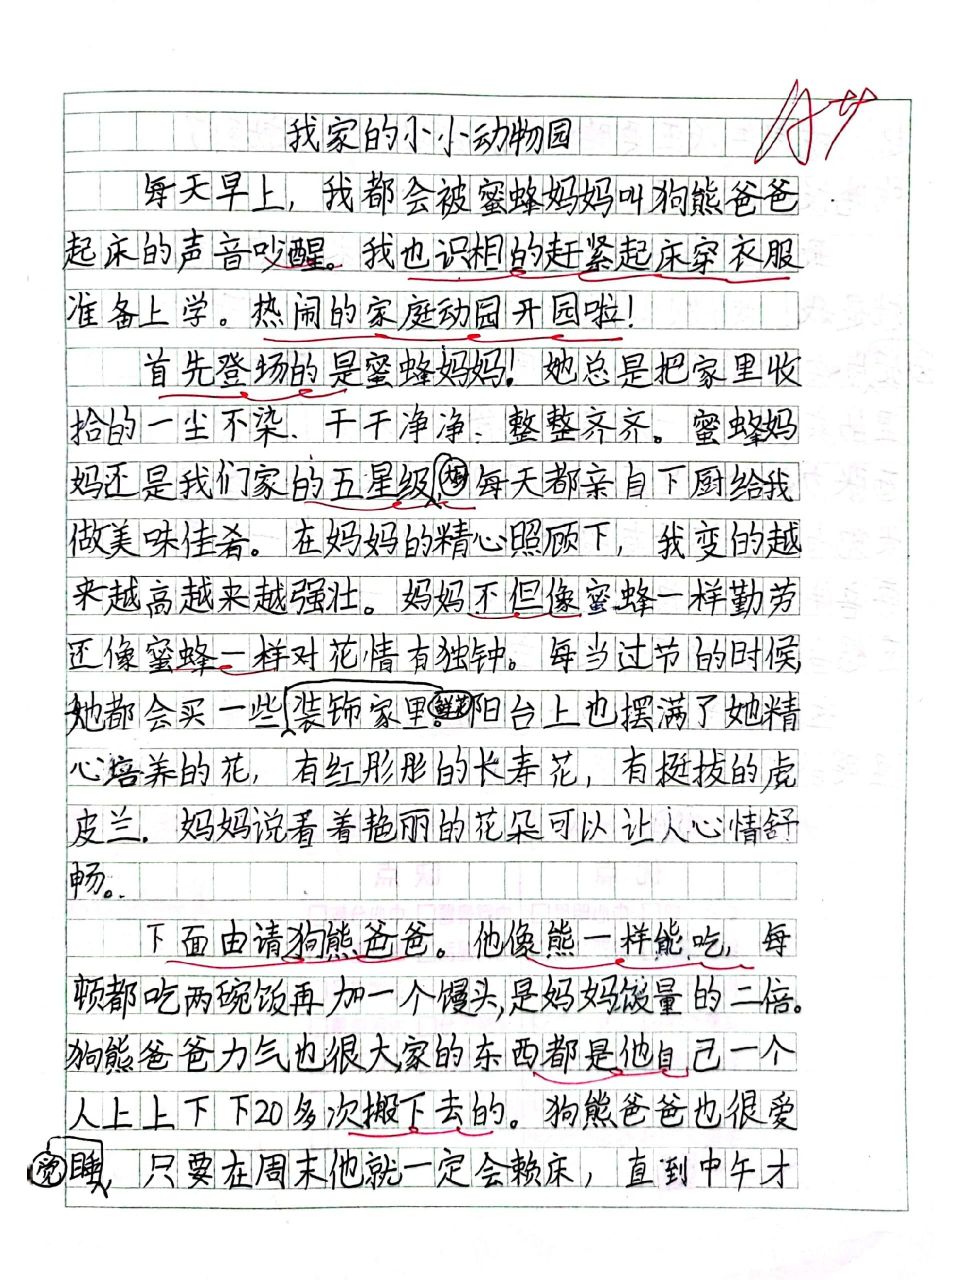 我家的小小动物园
每天早上，我都会被蜜蜂妈妈叫狗熊爸爸
起床的声音吵醒。我也识相的赶紧起床穿衣服
准备上学。热闹的家庭动园开园啦！
首先登场的是蜜蜂妈妈！她总是把家里收
拾的一尘不染、干干净净、整整齐齐。蜜蜂妈
妈还是我们家的五星级，每天都亲自下厨给我
做美味佳肴。在妈妈的精心照顾下，我变的越
来越高越来越强壮。妈妈不但像蜜蜂一样勤劳
还像蜜蜂一样对花情有独钟。每当过节的时候
她都会买一些鲜花装饰家里。阳台上也摆满了她精
心培养的花，有红彤彤的长寿花，有挺拔的虎
皮兰。妈妈说看着艳丽的花朵可以让人心情舒
畅。
下面由请狗熊爸爸。他像熊一样能吃，每
顿都吃两碗饭再加一个馒头，是妈妈饭量的二倍。
狗熊爸爸力气也很大，家的东西都是他自己一个
人上上下下20多次搬下去的。狗熊爸爸也很爱
睡觉，只要在周末他就一定会赖床，直到中午才